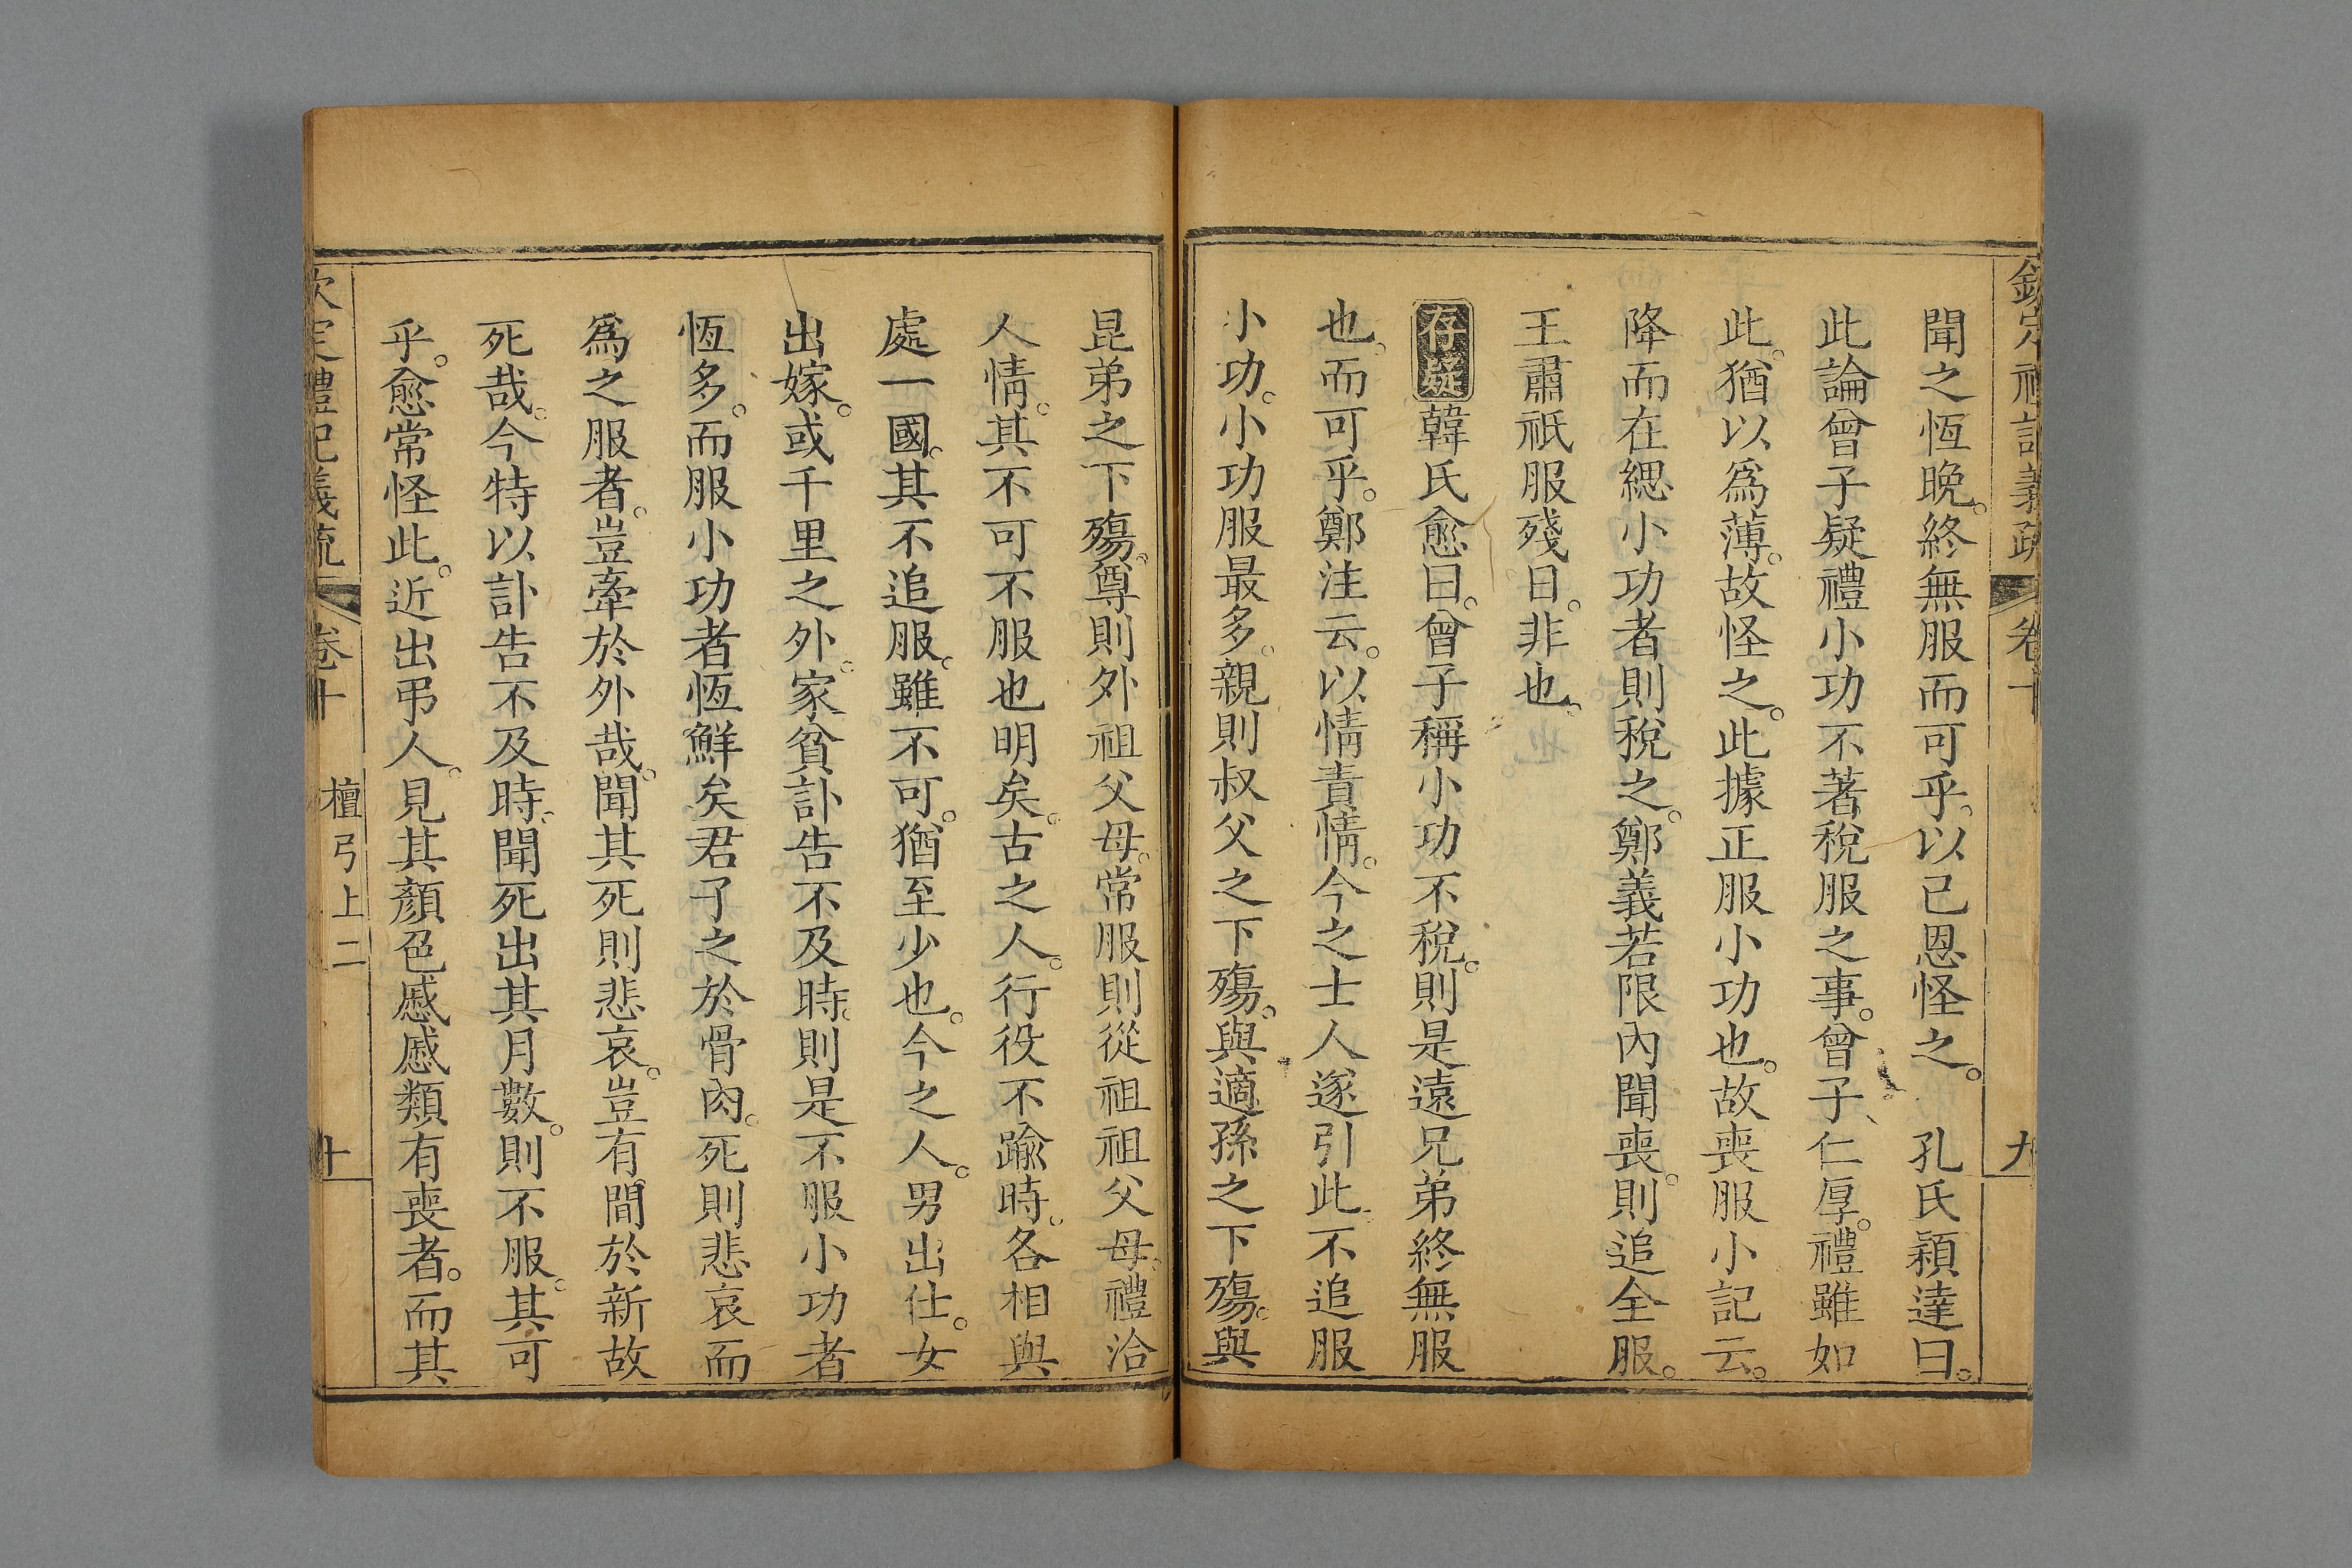 欽定禮記義疏 卷十 九
聞之恆晚。終無服而可乎。以己恩怪之。 孔氏穎達曰。
此論曾子疑禮小功不著稅服之事。曾子仁厚。禮雖如
此。猶以爲薄。故怪之。此據正服小功也。故喪服小記云。
降而在緦小功者則稅之。鄭義若限內聞喪。則追全服。
王肅祇服殘日。非也。
存疑韓氏愈曰。曾子稱小功不稅。則是遠兄弟終無服
也。而可乎。鄭注云。以情責情。今之士人遂引此。不追服
小功。小功服最多。親則叔父之下殤。與適孫之下殤。與
昆弟之下殤。尊則外祖父母。常服則從祖祖父母。禮洽
人情。其不可不服也明矣。古之人。行役不踰時。各相與
處一國。其不追服。雖不可。猶至少也。今之人。男出仕。女
出嫁。或千里之外。家貧訃告不及時。則是不服小功者
恆多。而服小功者恆鮮矣君子之於骨肉。死則悲哀而
爲之服者。豈牽於外哉。聞其死則悲哀。豈有間於新故
死哉。今特以訃告不及時。聞死出其月數。則不服。其可
乎。愈常怪此。近出弔人。見其顏色慼慼類有喪者。而其
欽定禮記義疏 卷十 檀弓上二 十